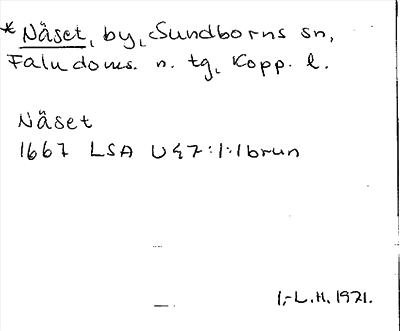 * Näset, by, Sundborns sn,
Faludoms. n. tg, Kopp. l.
Näset
1667 LSA U47:1:1brun
I,-L.H. 1971.